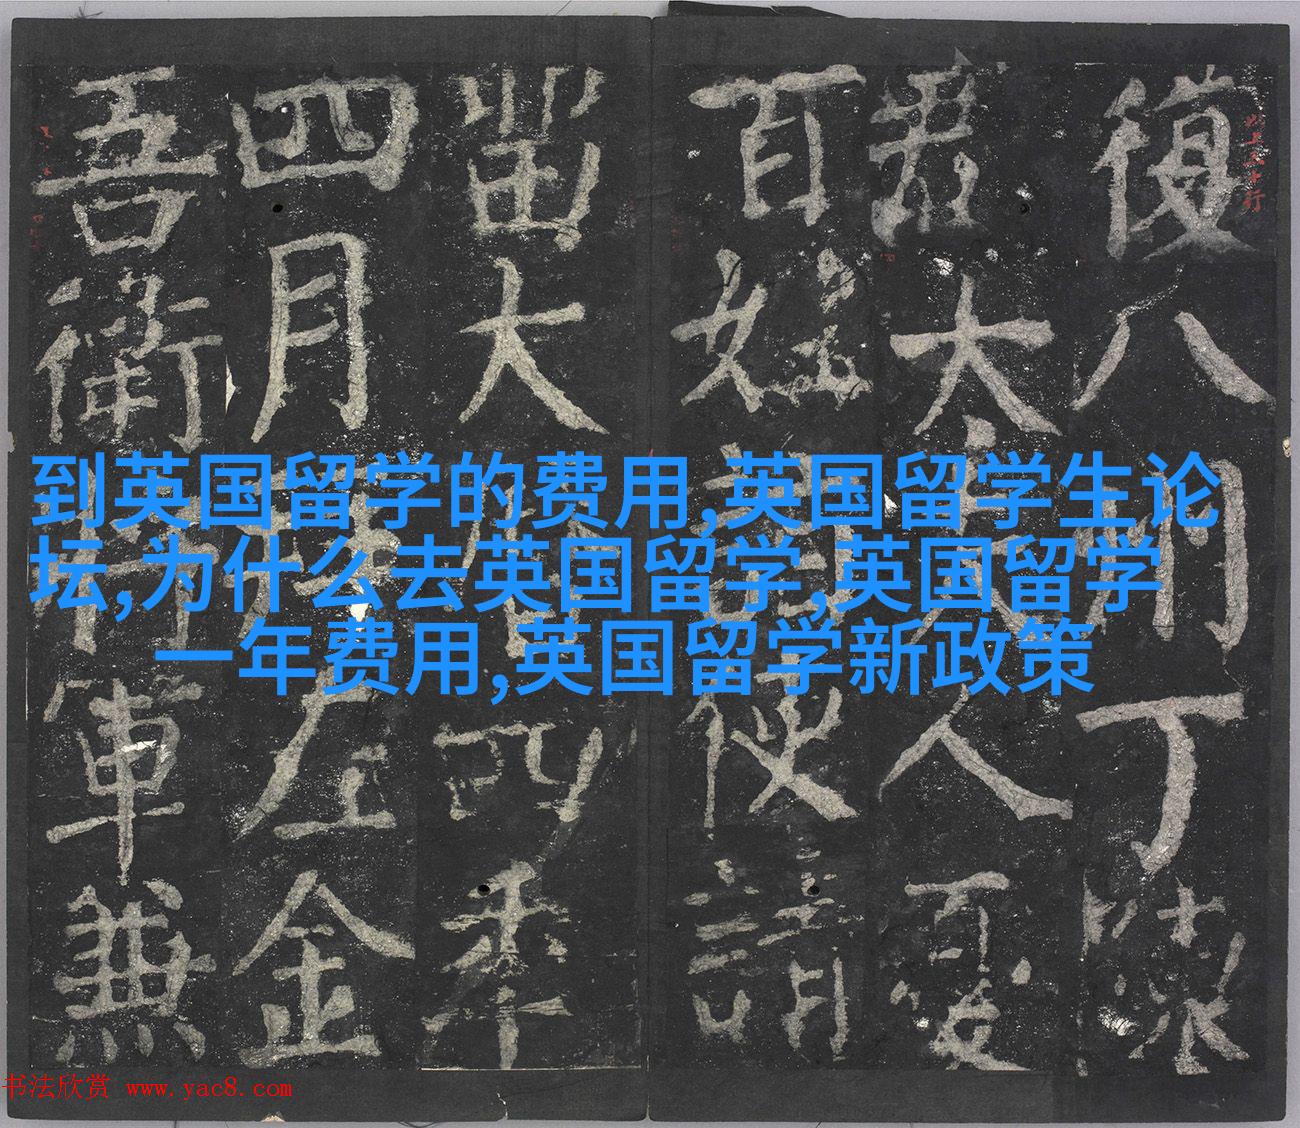 復八丁
君太夫人
百姓使請
留大四年
四月左金
吾衛將軍兼
到英国留学的费用,英国留学生论
坛,为什么去英国留学,英国留学
一年费用,英国留学新政策
书法欣赏 www.yac8.com